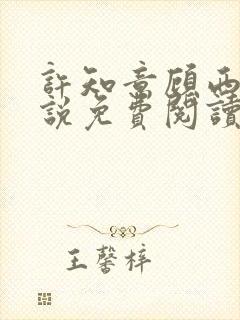 許知意顧西
說免費閱讀
王馨梓